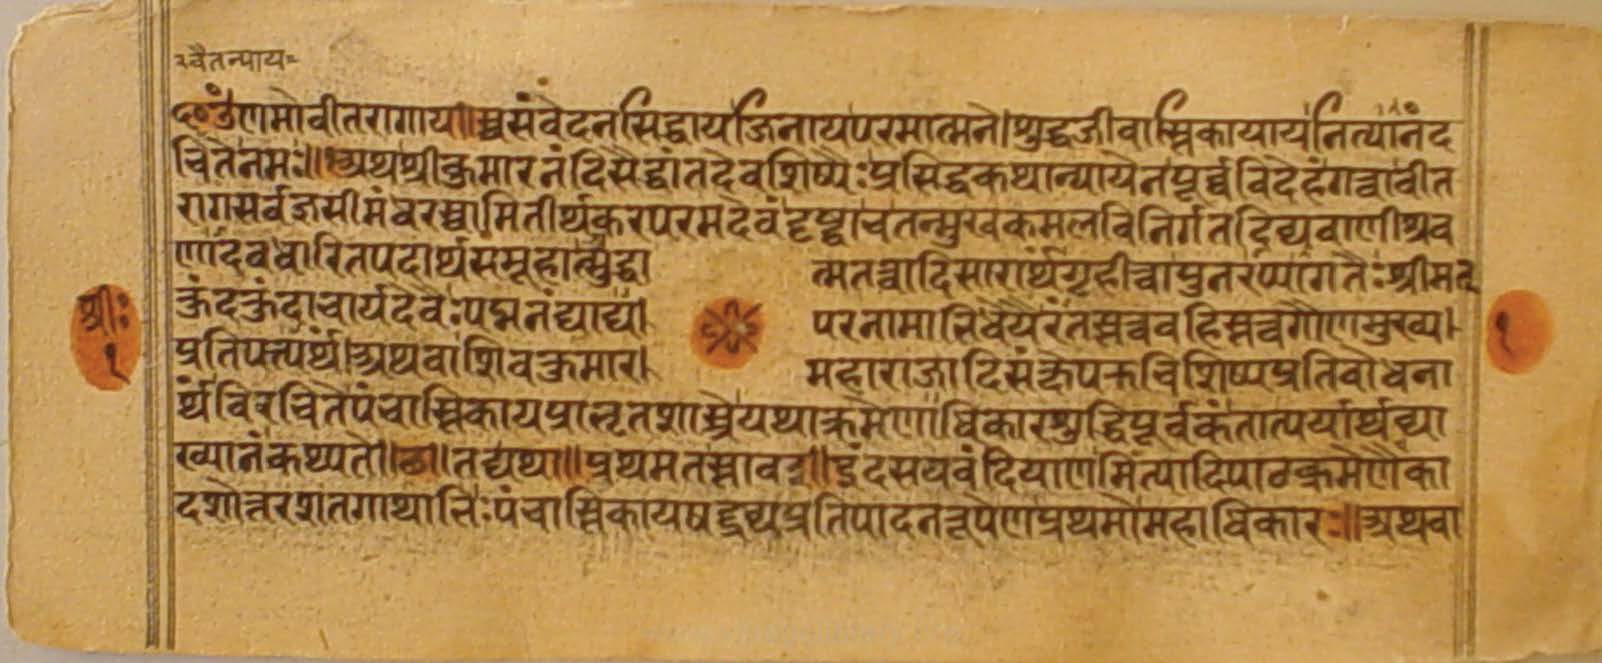 चैतन्याय
॥६०॥ उँ णमो वीतरागाय॥स्वसंवेदनसिद्धायजिनायपरमात्मने।शुद्धजीवास्तिकायायनित्यानंद
चितेनमः॥१॥अथश्रीकुमारनंदिसैद्धांतदेवशिष्यैःप्रसिद्धकथान्यायेनपूर्वविदेहंगत्वावीत
रागसर्वज्ञसीमंधरस्वामितीर्थकरपरमदेवंदृष्ट्वाचतन्मुखकमलविनिर्गतदिव्यवाणीश्रव
णादवधारितपदार्थसमूहात्शुद्धा त्मतत्त्वादिसारार्थंगृहीत्वापुनरप्यागतैःश्रीमत्
श्रीः कुंदकुंदाचार्यदेवैःपद्मनंद्याद्य। परनामाभिधेयैरंतस्तत्त्ववहिस्तत्त्वगौणमुख्य। १
१ प्रतिपत्त्यर्थं।अथवाशिवकुमार। महाराजादिसंक्षेपरुचिशिष्यप्रतिबोधना
र्थंविरचितेपंचास्तिकायप्राभृतशास्त्रेयथाक्रमेणाधिकारशुद्धिपूर्वकंतात्पर्यार्थव्या
ख्यानंकथ्यते॥छ॥तद्यथा॥प्रथमतस्तावद्॥इंदसयवंदियाणमित्यादिपाठक्रमेणैका
दशोत्तरशतगाथाभिःपंचास्तिकायषड्द्रव्यप्रतिपादनरूपेणप्रथमोमहाधिकारः॥अथवा